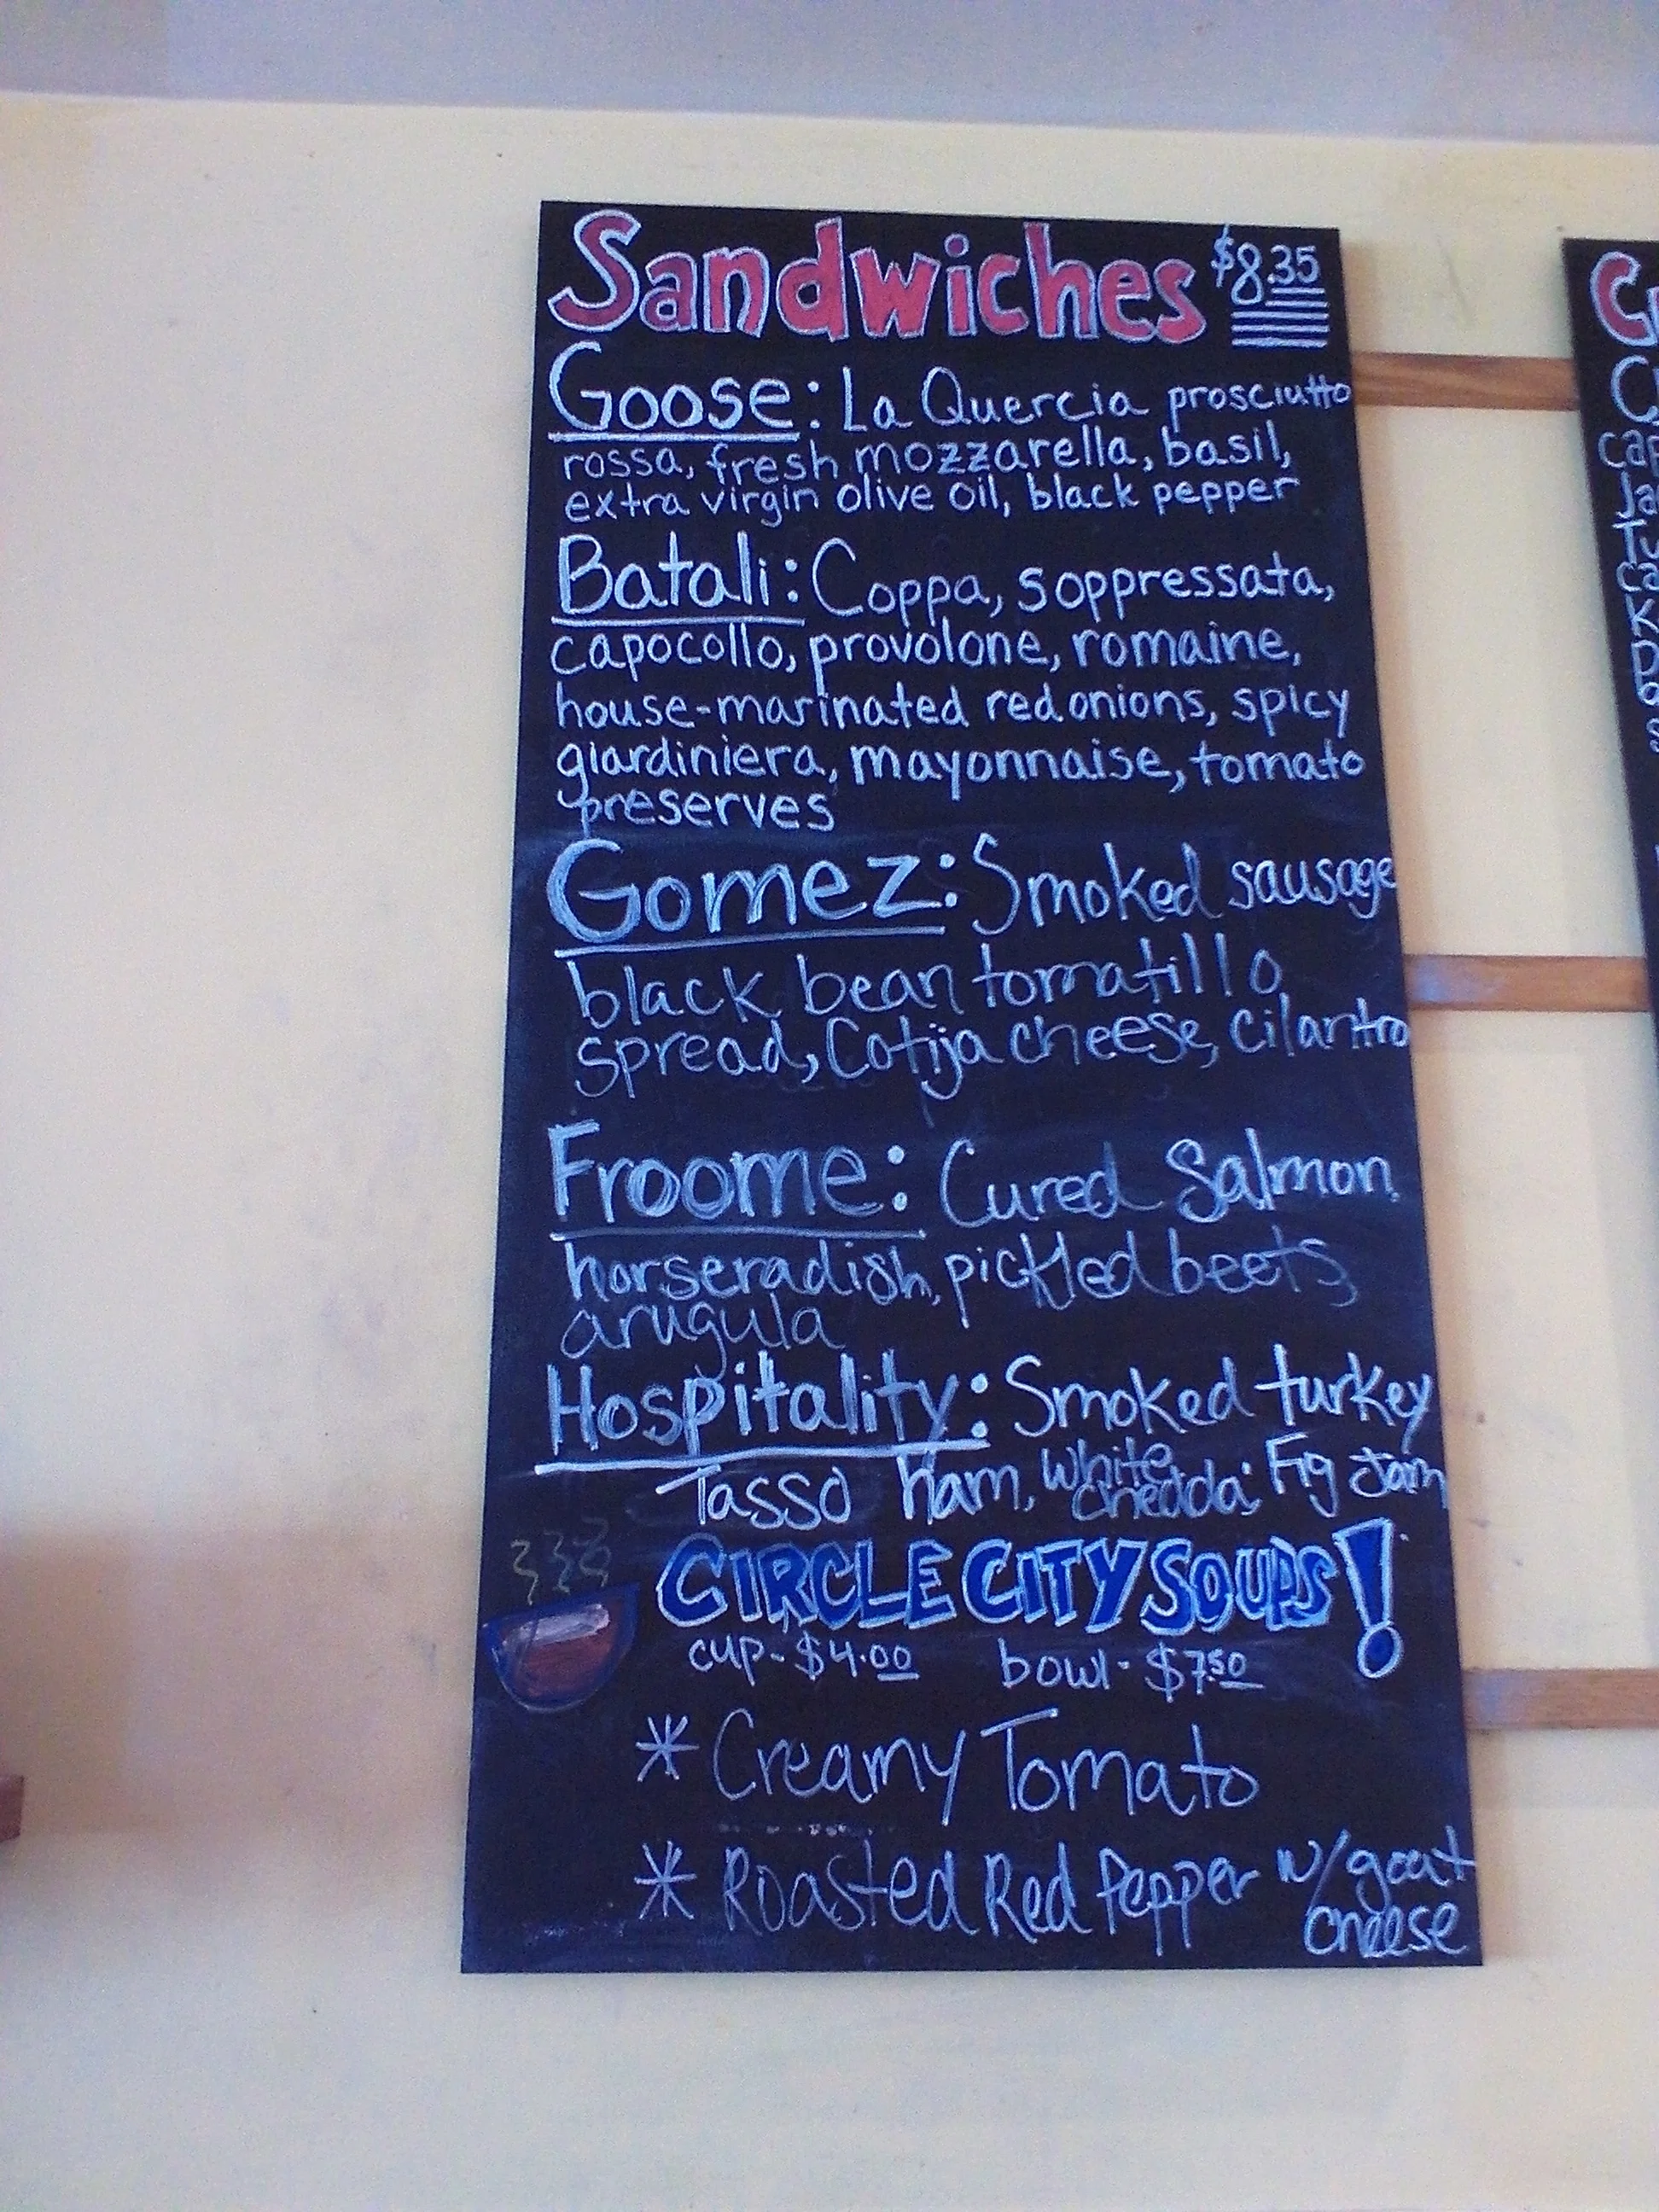 Sandwiches $8.35
Goose: La Quercia prosciutto
rossa, fresh mozzarella, basil,
extra virgin olive oil, black pepper
Batali: Coppa, soppressata,
capocollo, provolone, romaine,
house-marinated red onions, spicy
giardiniera, mayonnaise, tomato
preserves
Gomez: Smoked sausage
black bean tomatillo
spread, Cotija cheese, cilantro
Froome: Cured Salmon
horseradish, pickled beets,
arugula
Hospitality: Smoked turkey
Tasso ham, white chedda, Fig Jam
CIRCLE CITY SOUPS!
cup - $4.00 bowl - $7.50
* Creamy Tomato
* Roasted Red Pepper w/goat
cheese